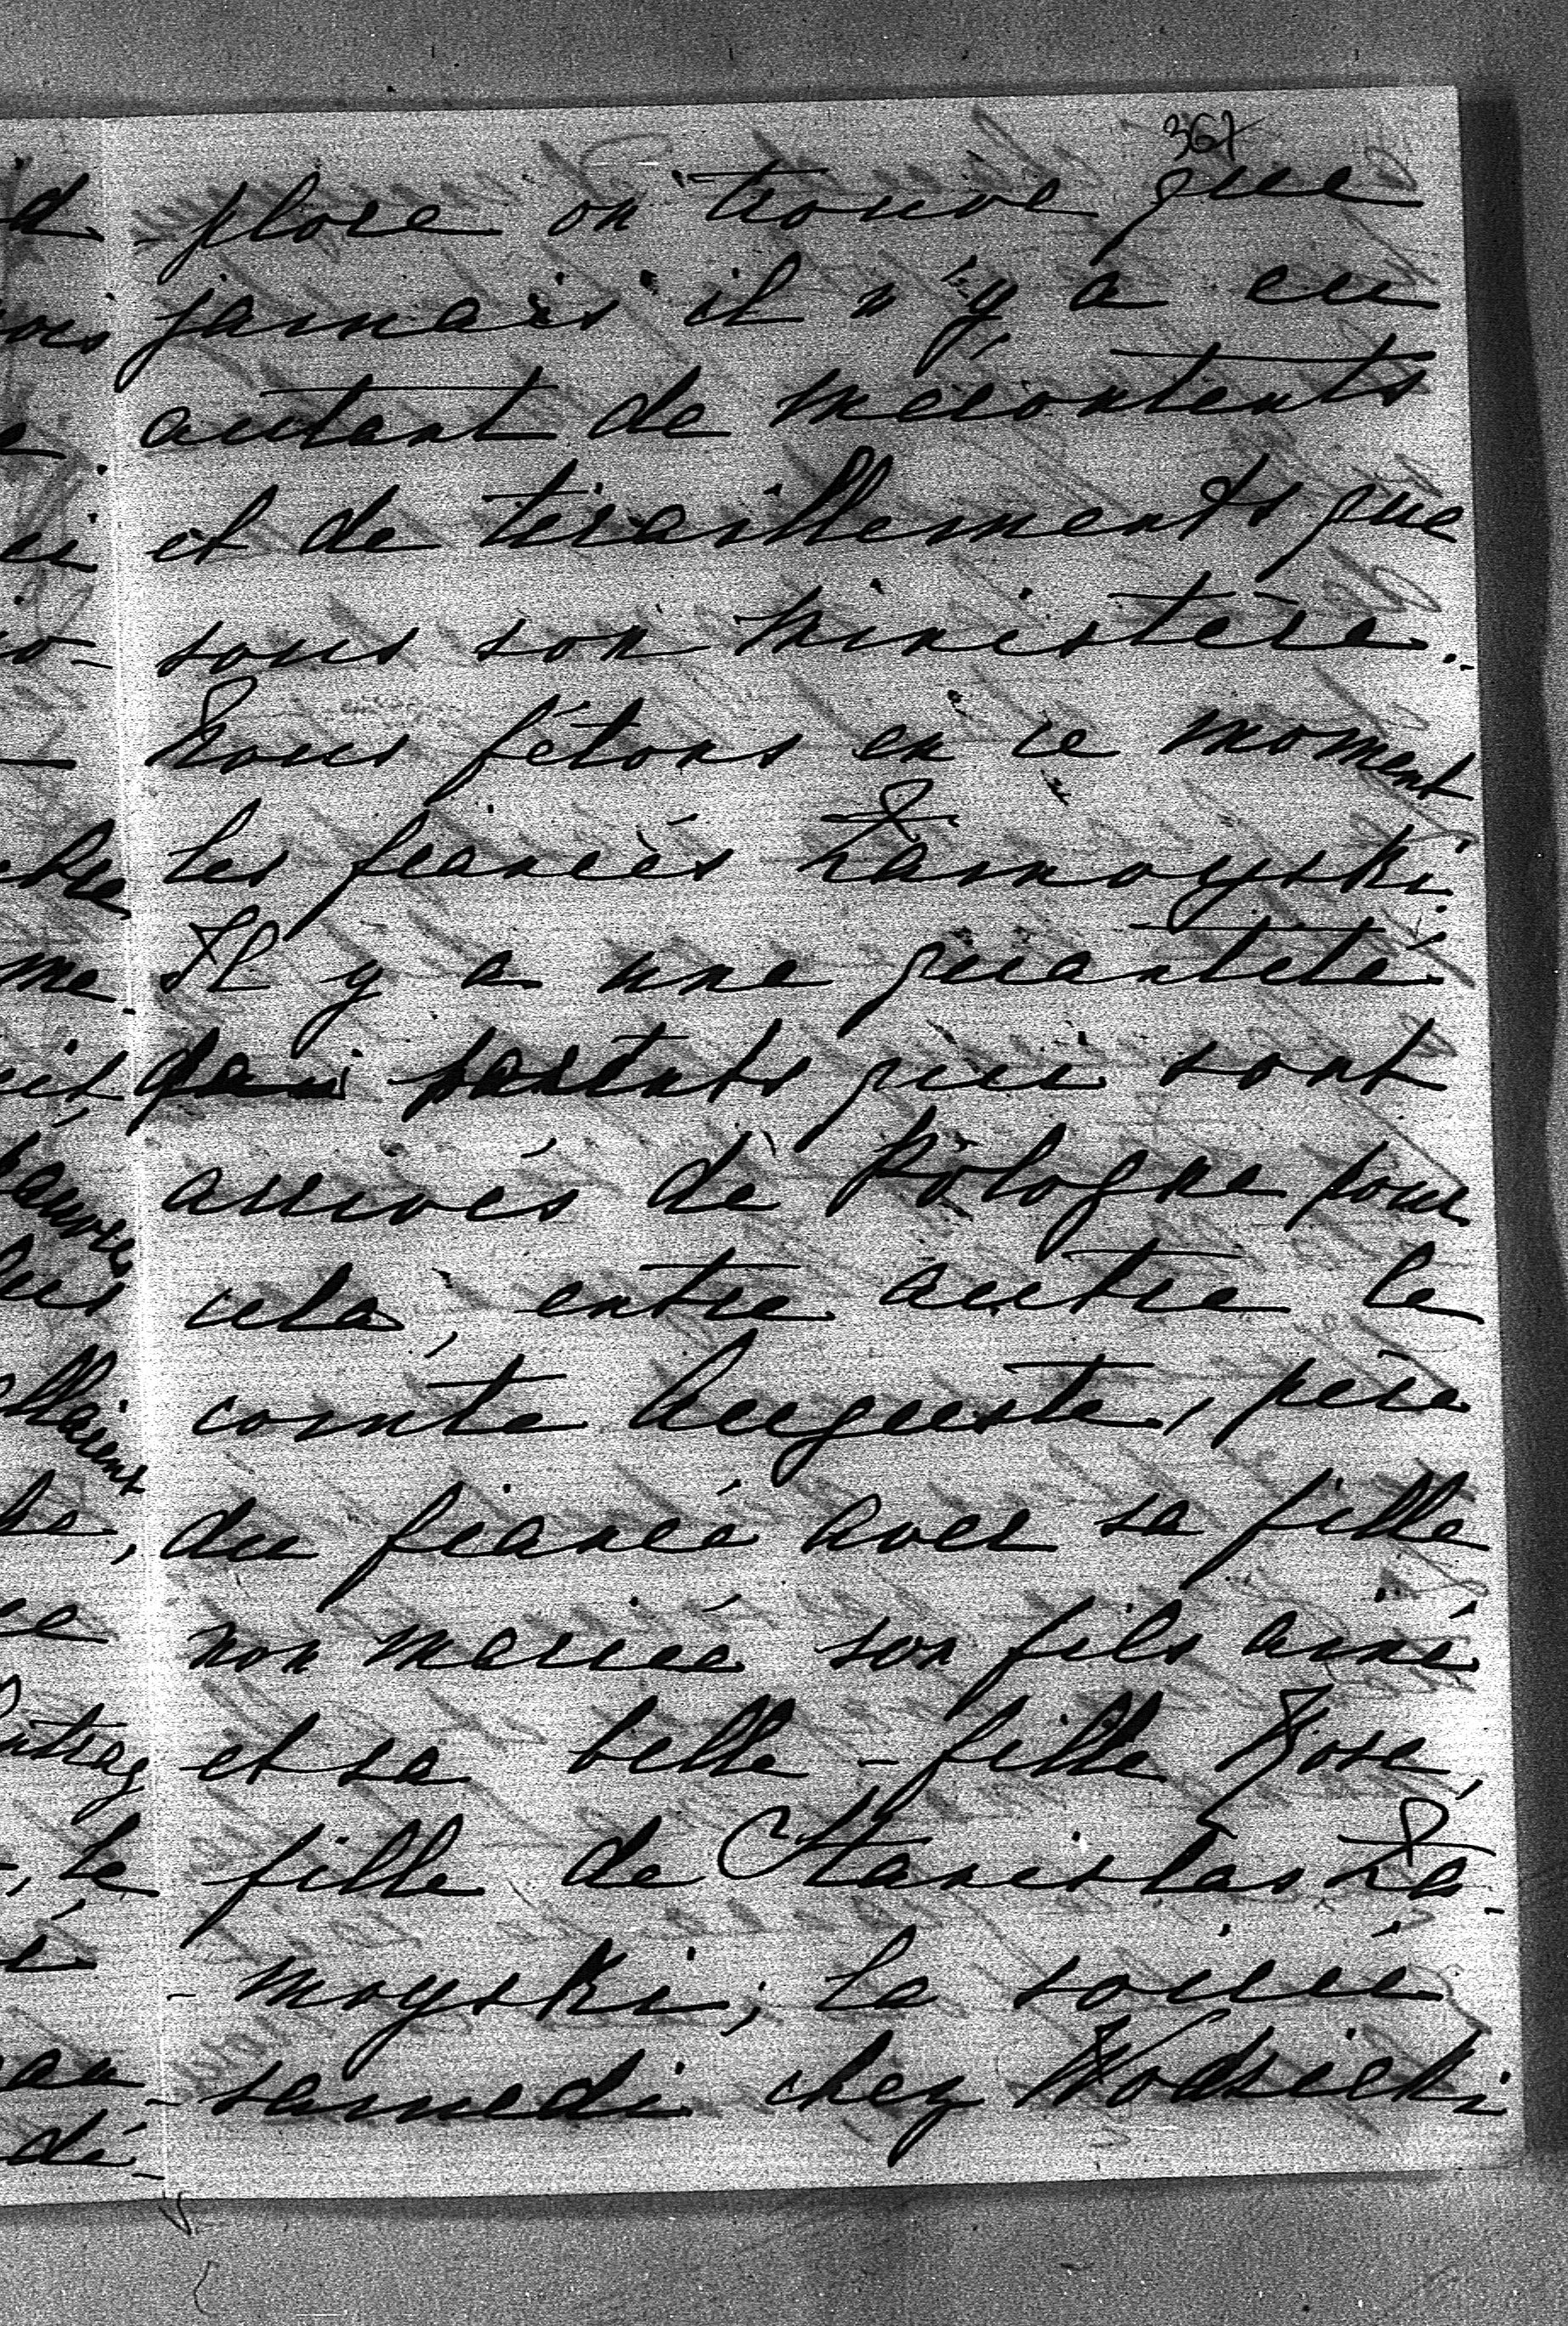 367
-plore on trouve que
jamais il n'y a eu
autant de mécontents
et de tiraillements que
sous son ministère.-
Nous fêtons en ce moment
les fiancés Zamoyski.
Il y a une quantité
de parents qui sont
arrivés de Pologne pour
cela, entre autre le
comte Auguste, père
du fiancé avec sa fille
non mariée son fils ainé
et sa belle-fille Rose,
fille de Stanislas Za-
-moyski; la soirée
samedi chez Wodzicki